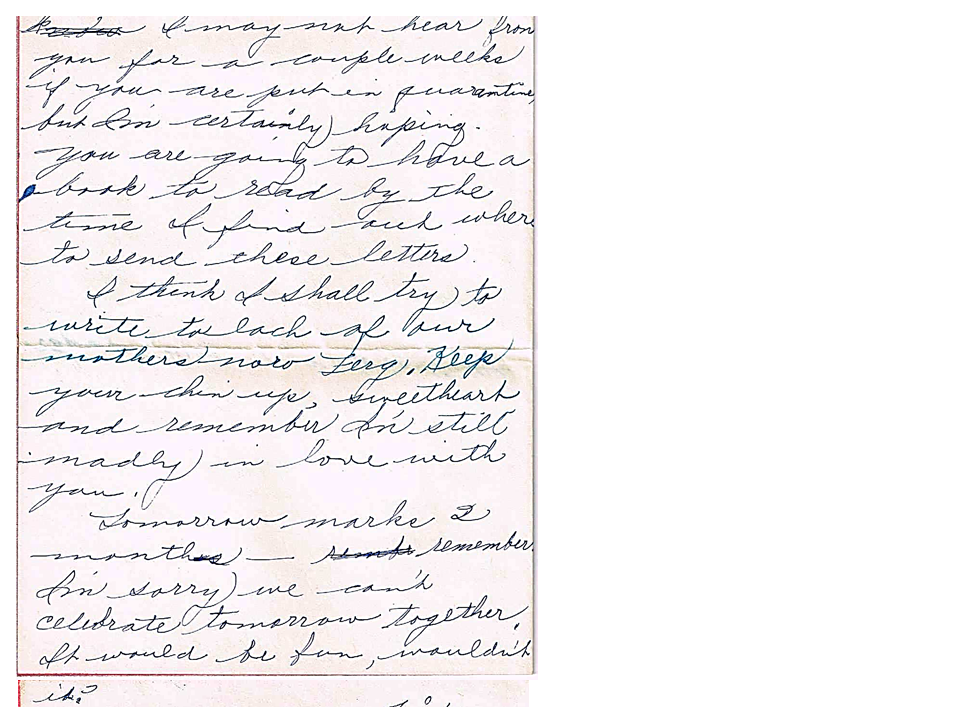 I may not hear from
you for a couple weeks
if you are put in quarantine,
but I'm certainly hoping.
You are going to have a
book to read by the
time I find out where
to send these letters.
I think I shall try to
write to each of our
mothers now Ferg. Keep
your chin up, sweetheart
and remember I'm still
madly in love with
you.
Tomorrow marks 2
months — remember.
I'm sorry we can't
celebrate tomorrow together.
It would be fun, wouldn't
it?